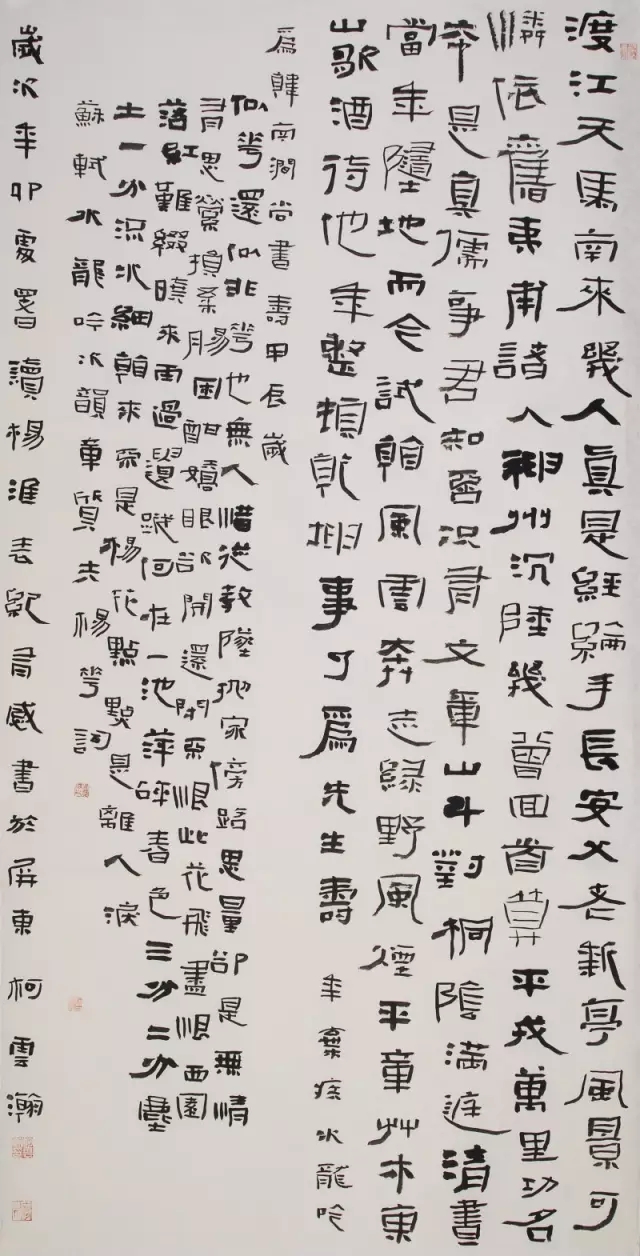 渡江天馬南來幾人真是經綸手長安父老新亭風景可
憐依舊夷甫諸人神州沉陸幾曾回首算平戎萬里功名
本是真儒事君知否況有文章山斗對桐陰滿庭清晝
當年墮地而今試看風雲奔走綠野風煙平章艸木東
山歌酒待他年整頓乾坤事了為先生壽 辛棄疾水龍吟
為韓南澗尚書壽甲辰歲
似花還似非花也無人惜從教墜拋家傍路思量卻是無情
有思縈損柔腸困酣嬌眼欲開還閉不恨此花飛盡恨西園
落紅難綴曉來雨過遺蹤何在一池萍碎春色三分二分塵
土一分流水細看來不是楊花點點是離人淚
蘇軾水龍吟次韻章質夫楊花詞
歲次辛卯處暑讀楊淮表紀有感書於屏東柯雲瀚